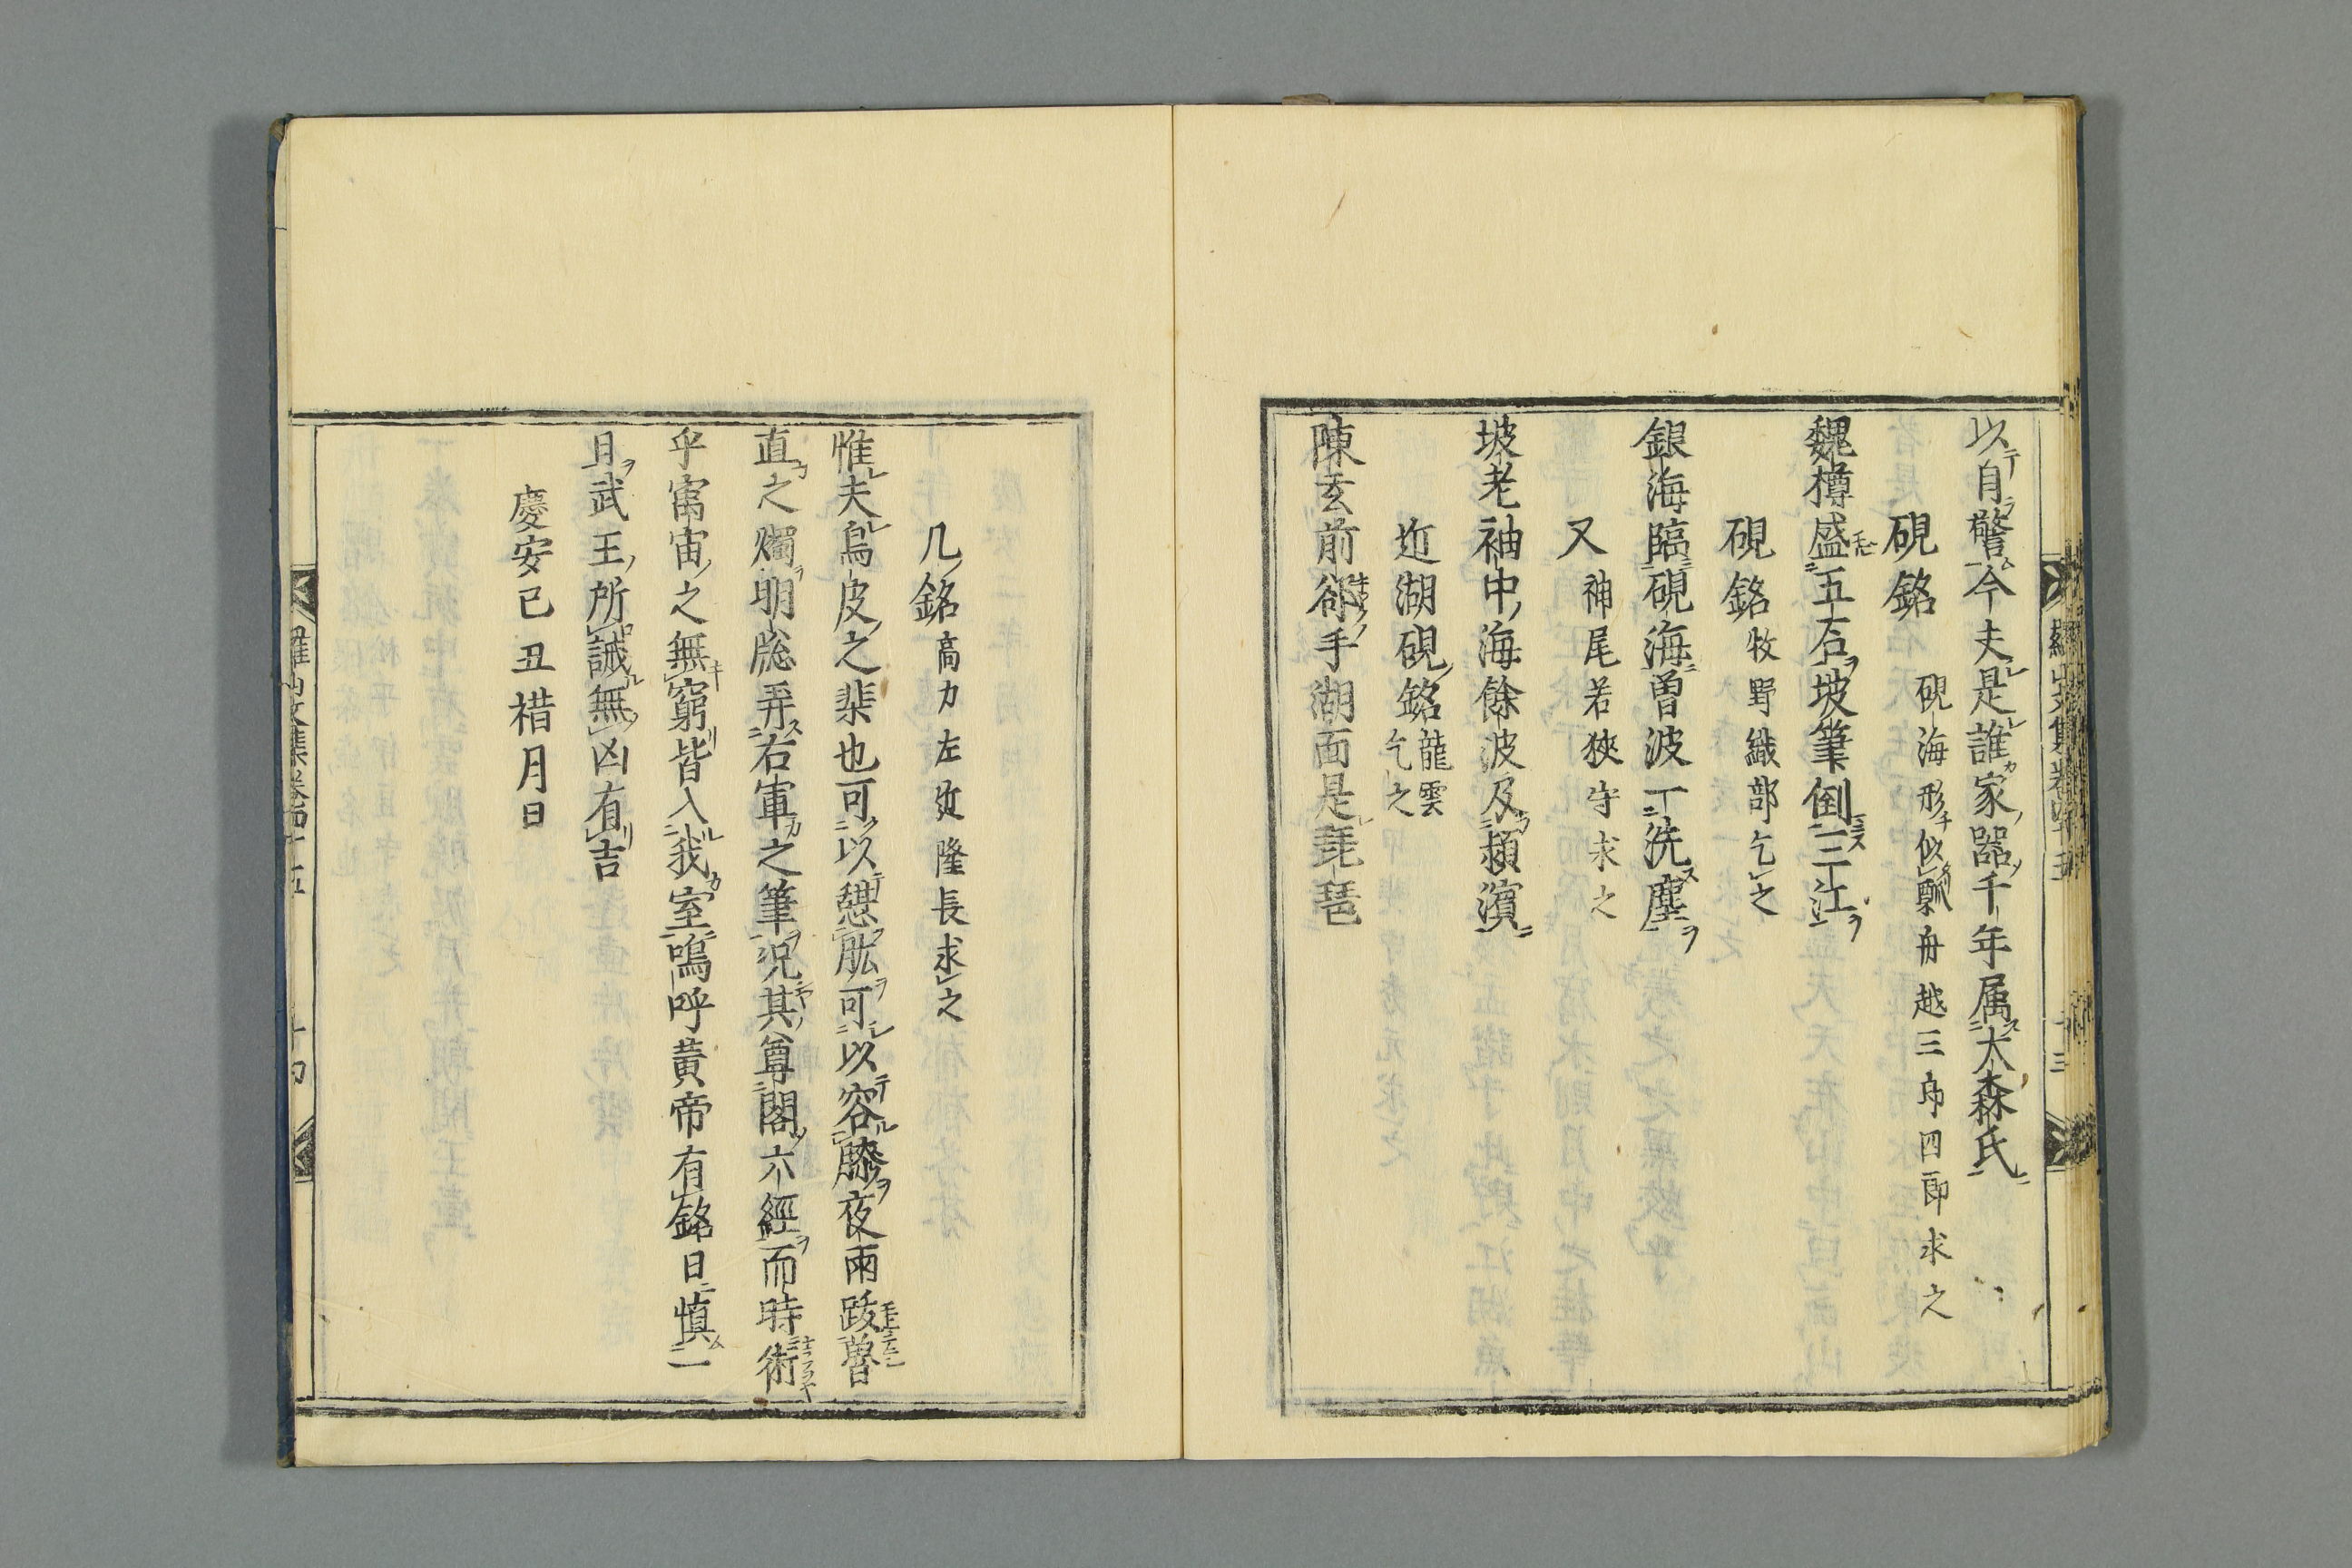 以自警今夫是誰家器千年属大森氏
硯銘 硯海形似瓢舟越三郎四郎求之
魏樽盛五石坡筆倒三江
硯銘 牧野織部乞之
銀海臨硯海曽波一洗塵
又 神尾若狹守求之
坡老袖中海餘波及潁濱
近湖硯銘 龍雲乞之
陳玄前郤手湖面是琵琶
羅山文集卷四十五 十三
几銘 高力左近隆長求之
惟夫烏皮之棐也可以憩肱可以容膝夜雨跋魯
直之燭明牕弄右軍之筆况其尊閣六經而時術
乎寓宙之無窮皆入我室嗚呼黄帝有銘曰慎一
日武王所誡無凶有吉
慶安己丑㬺月日
羅山文集卷四十五 十四